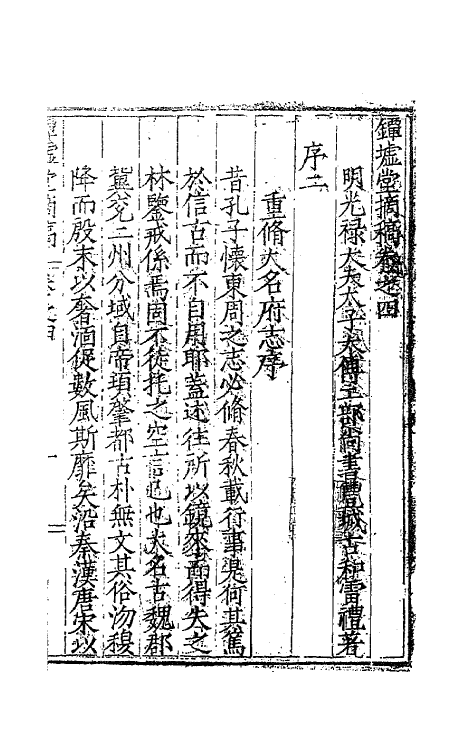 鐔墟堂摘稿卷之四
明光禄大夫太子太傅工部尚書豐城古和雷禮著
序二
重脩大名府志序
昔孔子懷東周之志必脩春秋載行事是何其篤
於信古而不自用耶葢述往所以鏡來而得失之
林鑒戒係焉固不徒托之空言已也大名古魏郡
冀兖二州分域自帝頊肇都古朴無文其俗沕穆
降而殷末以奢湎從數風斯靡矣沿秦漢唐宋以
鐔墟堂摘稿 卷之四 一